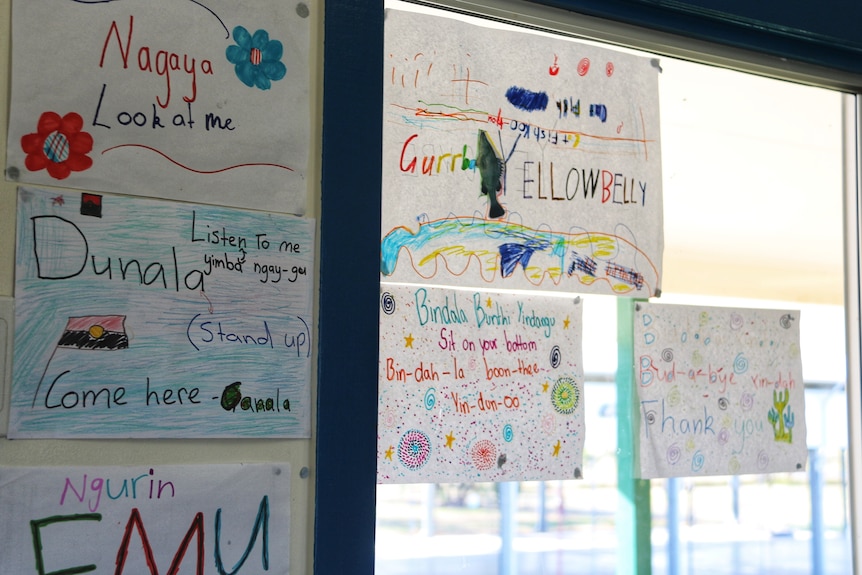 Nagaya
Look at me
Dunala
Listen To me
yimba ngay-gu
(Stand up)
Come here - Ganala
Ngurin
EMU
Gurrb
YELLOWBELLY
Bindala Bunthi Yindangu
Sit on your bottom
Bin-dah-la boon-thee-
Yin-dun-oo
Bud-a-bye yin-dah
Thank you